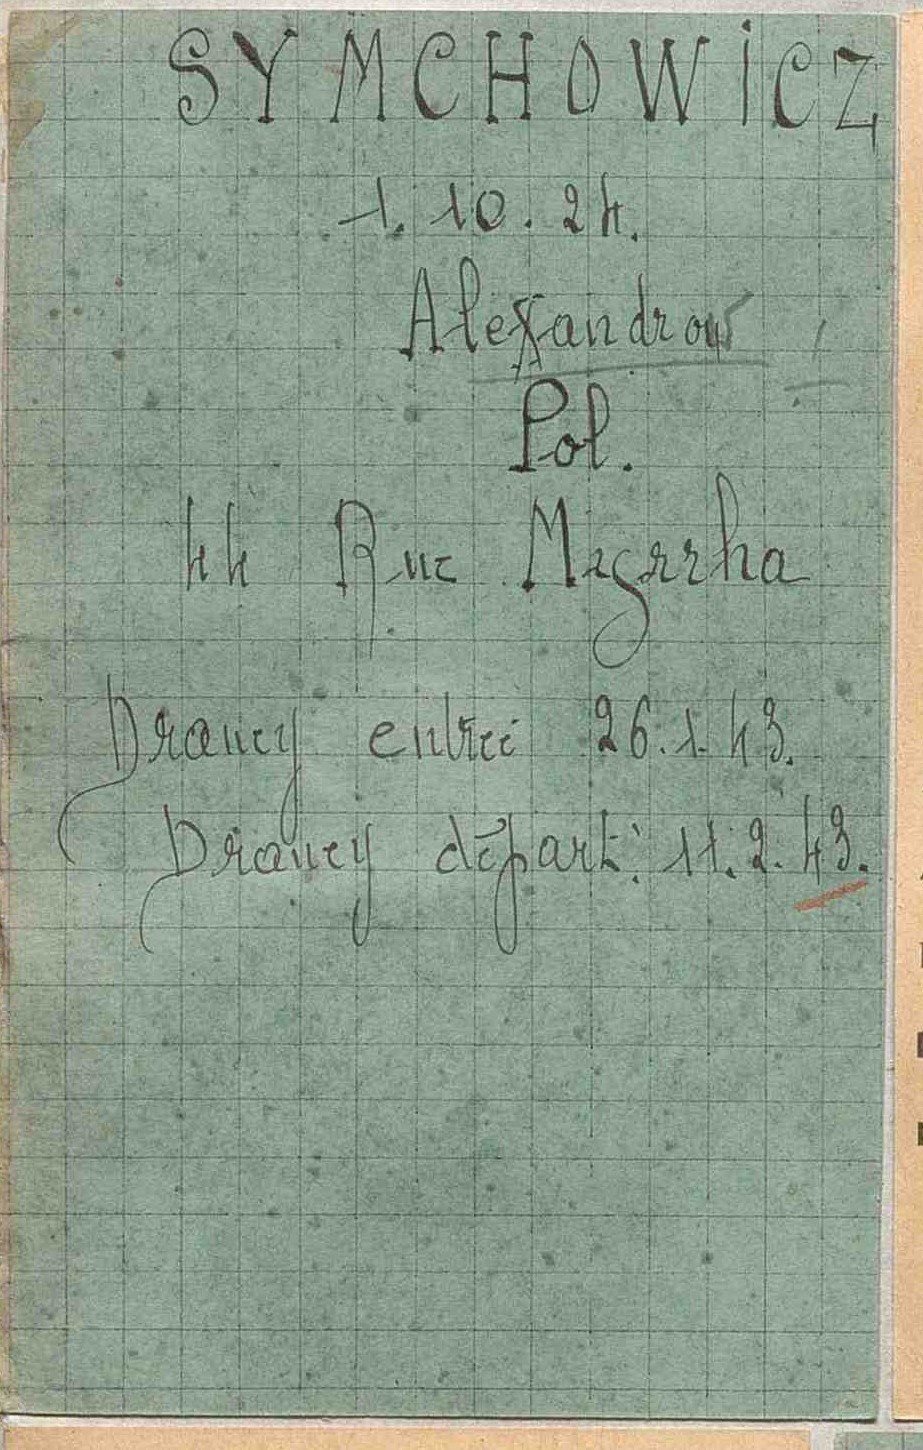 SYMCHOWiCZ
1.10.24.
Alexandrow
Pol.
44 Rue
Drancy entrée 26.1.43.
Drancy départ: 11.2.43.